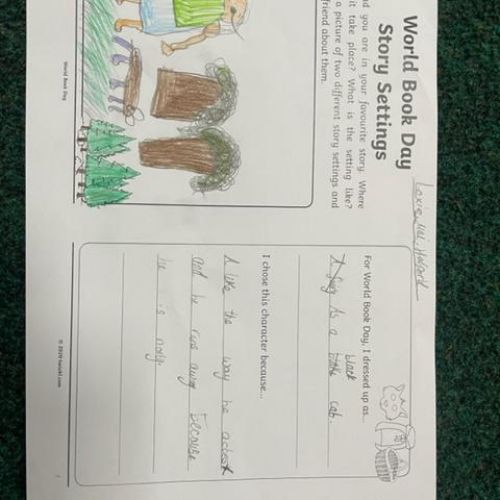 World Book Day
Story Settings
you are in your favourite story. Where
it take place? What is the setting like?
a picture of two different story settings and
friend about them.
World Book Day
For World Book Day, I dressed up as...
black
As a cab.
I chose this character because...
the way he
and he run away because
he is
© 2019 twinkl.com